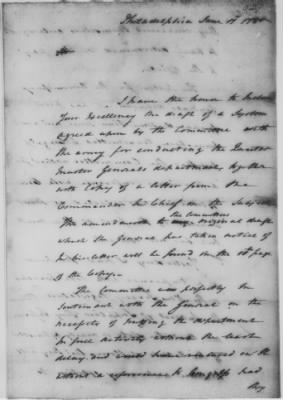 Philadelphia June 17 1780
Sir
I have the honor to inclose
Your Excellency the draft of a System
agreed upon by the Committee with
the army for conducting the Quarter
Master Generals department, together
with Copy of a letter from the
Commander in Chief on the Subject
the Committees
The amendments to original draft
which the General has taken notice of
in his letter will be found on the page
of the Copy
The Committee was perfectly in
Sentiment with the General on the
necessity of putting the department
in full activity without the least
delay and would have ventured on the
a reference to Congress had
they